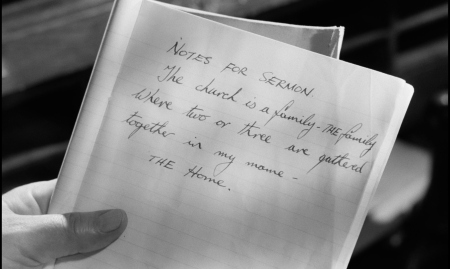 NOTES FOR SERMON.
The church is a family - THE family
Where two or three are gathered
together in my mame -
THE Home.